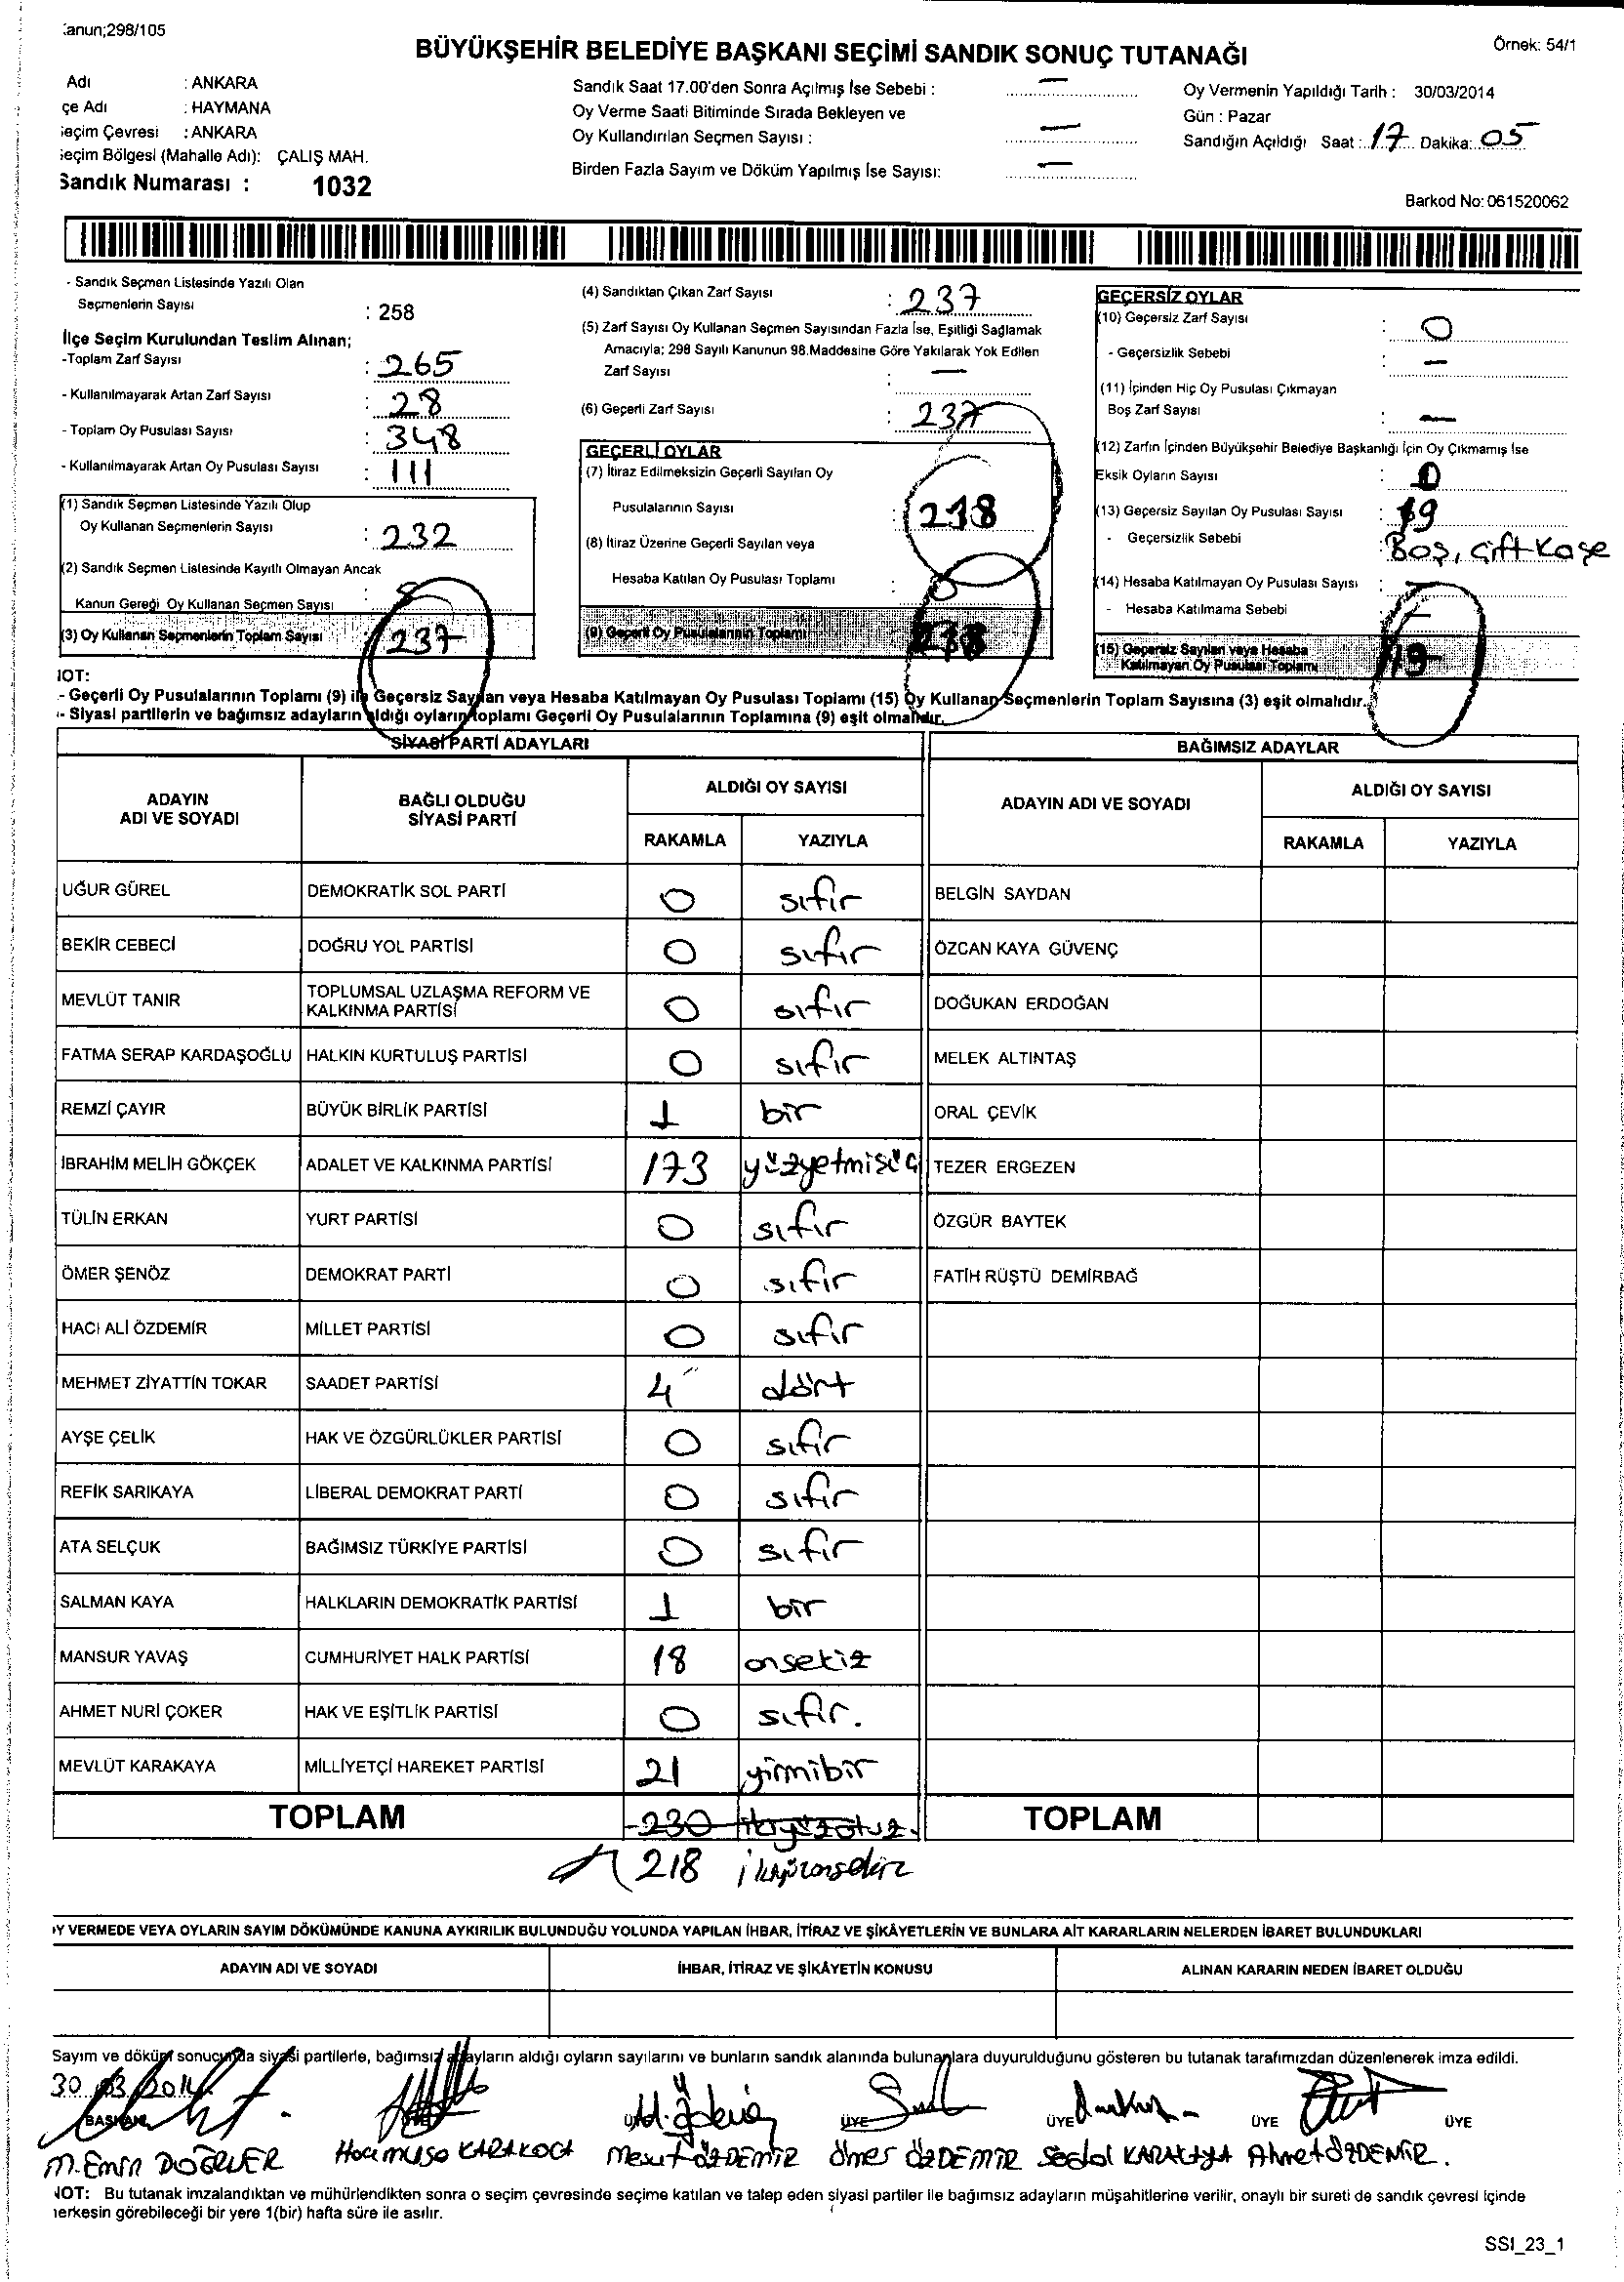 anun;298/105
Örnek: 54/1
BÜYÜKŞEHİR BELEDİYE BAŞKANI SEÇİMİ SANDIK SONUÇ TUTANAĞI
Adı : ANKARA
çe Adı : HAYMANA
eçim Çevresi : ANKARA
eçim Bölgesi (Mahalle Adı): ÇALIŞ MAH.
Sandık Numarası : 1032
Sandık Saat 17.00'den Sonra Açılmış İse Sebebi : —
Oy Verme Saati Bitiminde Sırada Bekleyen ve
Oy Kullandırılan Seçmen Sayısı : —
Birden Fazla Sayım ve Döküm Yapılmış İse Sayısı: —
Oy Vermenin Yapıldığı Tarih : 30/03/2014
Gün : Pazar
Sandığın Açıldığı Saat : 17 Dakika: 05
Barkod No: 061520062
- Sandık Seçmen Listesinde Yazılı Olan
Seçmenlerin Sayısı : 258
İlçe Seçim Kurulundan Teslim Alınan;
-Toplam Zarf Sayısı : 265
- Kullanılmayarak Artan Zarf Sayısı : 28
- Toplam Oy Pusulası Sayısı : 348
- Kullanılmayarak Artan Oy Pusulası Sayısı : 111
(1) Sandık Seçmen Listesinde Yazılı Olup
Oy Kullanan Seçmenlerin Sayısı : 232
(2) Sandık Seçmen Listesinde Kayıtlı Olmayan Ancak
Kanun Gereği Oy Kullanan Seçmen Sayısı :
(3) Oy Kullanan Seçmenlerin Toplam Sayısı : 237
(4) Sandıktan Çıkan Zarf Sayısı : 237
(5) Zarf Sayısı Oy Kullanan Seçmen Sayısından Fazla İse, Eşitliği Sağlamak
Amacıyla; 298 Sayılı Kanunun 98.Maddesine Göre Yakılarak Yok Edilen
Zarf Sayısı : —
(6) Geçerli Zarf Sayısı : 237
GEÇERLİ OYLAR
(7) İtiraz Edilmeksizin Geçerli Sayılan Oy
Pusulalarının Sayısı : 218
(8) İtiraz Üzerine Geçerli Sayılan veya
Hesaba Katılan Oy Pusulası Toplamı : 0
(9) Geçerli Oy Pusulalarının Toplamı
GEÇERSİZ OYLAR
(10) Geçersiz Zarf Sayısı : 0
- Geçersizlik Sebebi : —
(11) İçinden Hiç Oy Pusulası Çıkmayan
Boş Zarf Sayısı : —
(12) Zarfın İçinden Büyükşehir Belediye Başkanlığı İçin Oy Çıkmamış İse
Eksik Oyların Sayısı : 0
(13) Geçersiz Sayılan Oy Pusulası Sayısı : 19
- Geçersizlik Sebebi : Boş, çift Kaşe
(14) Hesaba Katılmayan Oy Pusulası Sayısı : —
- Hesaba Katılmama Sebebi : —
(15) Geçersiz Sayılan veya Hesaba
Katılmayan Oy Pusulası Toplamı 19
NOT:
- Geçerli Oy Pusulalarının Toplamı (9) ile Geçersiz Sayılan veya Hesaba Katılmayan Oy Pusulası Toplamı (15) Oy Kullanan Seçmenlerin Toplam Sayısına (3) eşit olmalıdır.
- Siyasi partilerin ve bağımsız adayların aldığı oyların toplamı Geçerli Oy Pusulalarının Toplamına (9) eşit olmalıdır.
SİYASİ PARTİ ADAYLARI BAĞIMSIZ ADAYLAR
ADAYIN ADI VE SOYADI BAĞLI OLDUĞU SİYASİ PARTİ ALDIĞI OY SAYISI ADAYIN ADI VE SOYADI ALDIĞI OY SAYISI
RAKAMLA YAZIYLA RAKAMLA YAZIYLA
UĞUR GÜREL DEMOKRATİK SOL PARTİ 0 sıfır BELGİN SAYDAN
BEKİR CEBECİ DOĞRU YOL PARTİSİ 0 sıfır ÖZCAN KAYA GÜVENÇ
MEVLÜT TANIR TOPLUMSAL UZLAŞMA REFORM VE KALKINMA PARTİSİ 0 sıfır DOĞUKAN ERDOĞAN
FATMA SERAP KARDAŞOĞLU HALKIN KURTULUŞ PARTİSİ 0 sıfır MELEK ALTINTAŞ
REMZİ ÇAYIR BÜYÜK BİRLİK PARTİSİ 1 bir ORAL ÇEVİK
İBRAHİM MELİH GÖKÇEK ADALET VE KALKINMA PARTİSİ 173 yüzyetmisüç TEZER ERGEZEN
TÜLİN ERKAN YURT PARTİSİ 0 sıfır ÖZGÜR BAYTEK
ÖMER ŞENÖZ DEMOKRAT PARTİ 0 sıfır FATİH RÜŞTÜ DEMİRBAĞ
HACI ALİ ÖZDEMİR MİLLET PARTİSİ 0 sıfır
MEHMET ZİYATTİN TOKAR SAADET PARTİSİ 4 dört
AYŞE ÇELİK HAK VE ÖZGÜRLÜKLER PARTİSİ 0 sıfır
REFİK SARIKAYA LİBERAL DEMOKRAT PARTİ 0 sıfır
ATA SELÇUK BAĞIMSIZ TÜRKİYE PARTİSİ 0 sıfır
SALMAN KAYA HALKLARIN DEMOKRATİK PARTİSİ 1 bir
MANSUR YAVAŞ CUMHURİYET HALK PARTİSİ 18 onsekiz
AHMET NURİ ÇOKER HAK VE EŞİTLİK PARTİSİ 0 sıfır.
MEVLÜT KARAKAYA MİLLİYETÇİ HAREKET PARTİSİ 21 yirmibir
TOPLAM 230 ikiyüzotuz. TOPLAM
218 ikiyüzonsekiz
OY VERMEDE VEYA OYLARIN SAYIM DÖKÜMÜNDE KANUNA AYKIRILIK BULUNDUĞU YOLUNDA YAPILAN İHBAR, İTİRAZ VE ŞİKÂYETLERİN VE BUNLARA AİT KARARLARIN NELERDEN İBARET BULUNDUKLARI
ADAYIN ADI VE SOYADI İHBAR, İTİRAZ VE ŞİKÂYETİN KONUSU ALINAN KARARIN NEDEN İBARET OLDUĞU
Sayım ve döküm sonucunda siyasi partilerle, bağımsız adayların aldığı oyların sayılarını ve bunların sandık alanında bulunanlara duyurulduğunu gösteren bu tutanak tarafımızdan düzenlenerek imza edildi.
30 03 2014
BAŞKAN ÜYE ÜYE ÜYE ÜYE ÜYE
M. Emin DOĞRUER Hacı musa KARAKOCA Mesut ÖZDEMİR Ömer ÖZDEMİR Sedal KARAKAYA Ahmet ÖZDEMİR.
NOT: Bu tutanak imzalandıktan ve mühürlendikten sonra o seçim çevresinde seçime katılan ve talep eden siyasi partiler ile bağımsız adayların müşahitlerine verilir, onaylı bir sureti de sandık çevresi içinde
herkesin görebileceği bir yere 1(bir) hafta süre ile asılır.
SSI_23_1